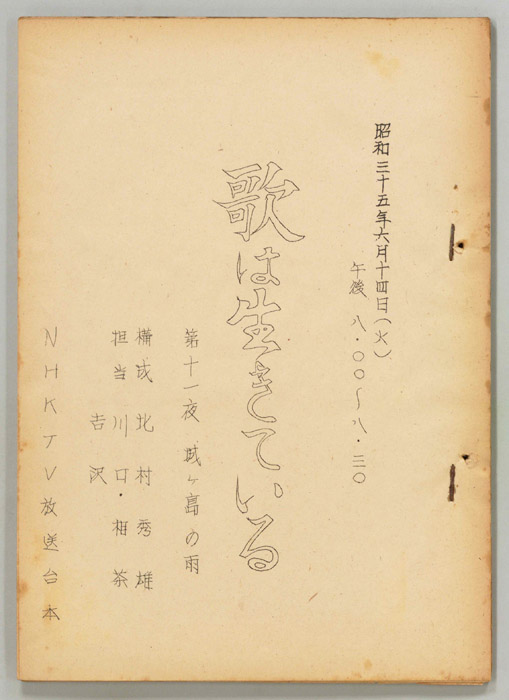 昭和三十五年六月十四日(火)
午後 八・〇〇〜八・三〇
歌は生きている
第十一夜 城ヶ島の雨
構成 北村秀雄
担当 川口・相茶
吉沢
NHKTV放送台本